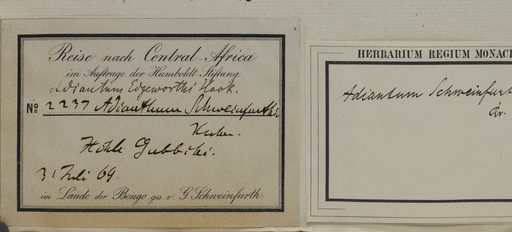 Reise nach Central Africa
im Auftrage der Humboldt-Stiftung
Adiantum Edgeworthi Hook.
No 2237 Adianthum Schweinfurthii
Kuhn.
Höhle Gubbihi.
31 Juli 69.
im Lande der Bongo ges. v. G. Schweinfurth.
HERBARIUM REGIUM MONAC
Adiantum Schweinfurt